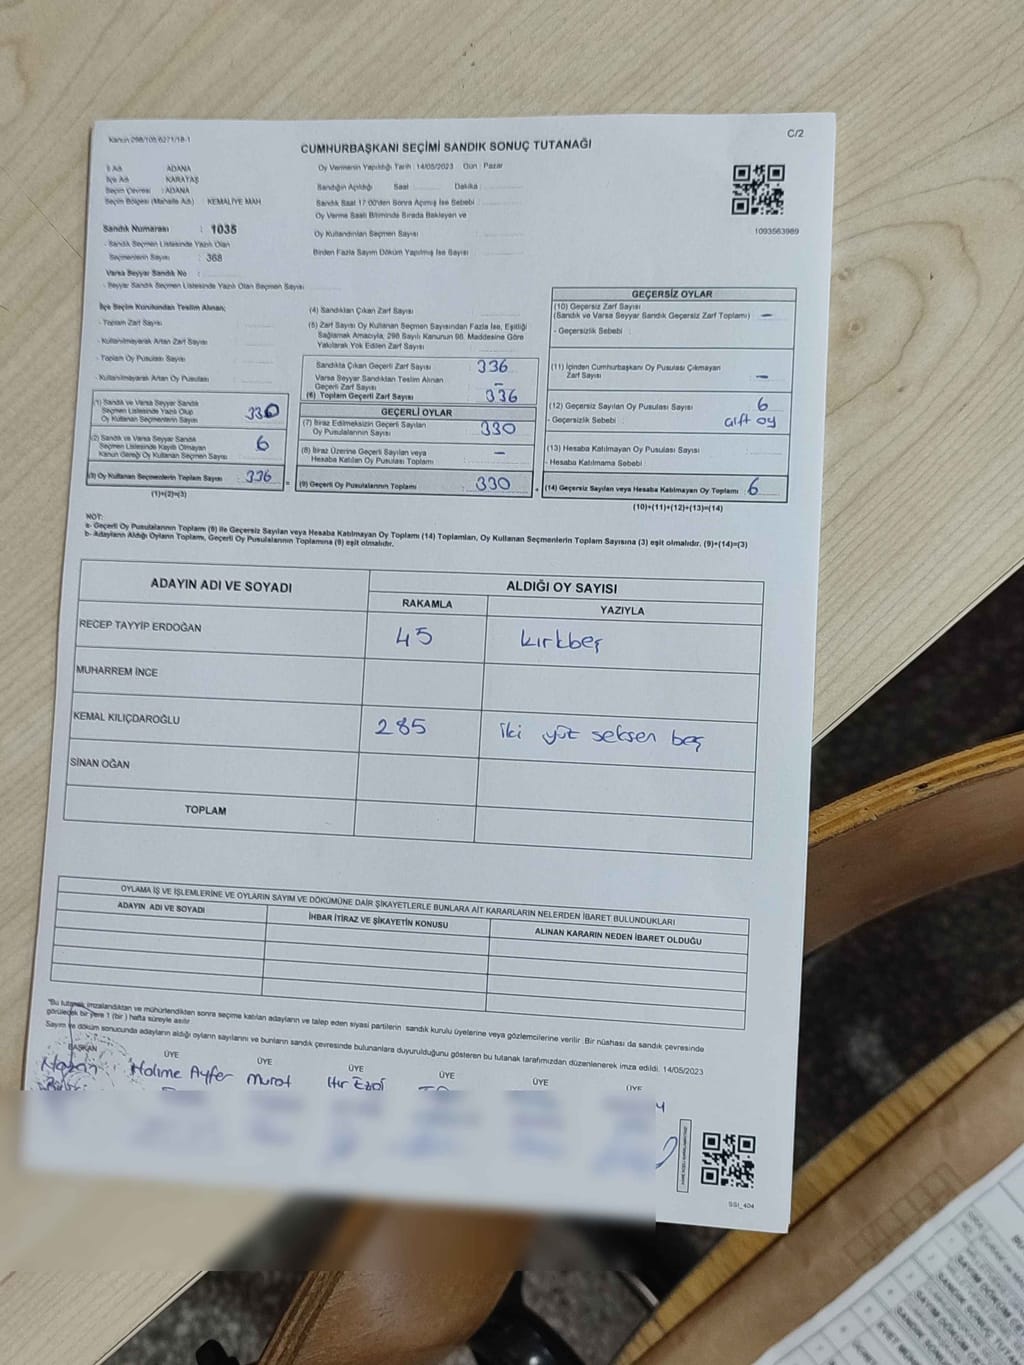 Kanun 298/105,6271/18-1
C/2
CUMHURBAŞKANI SEÇİMİ SANDIK SONUÇ TUTANAĞI
İl Adı : ADANA
İlçe Adı : KARATAŞ
Seçim Çevresi : ADANA
Seçim Bölgesi (Mahalle Adı) : KEMALİYE MAH
Sandık Numarası : 1035
- Sandık Seçmen Listesinde Yazılı Olan
Seçmenlerin Sayısı : 368
Varsa Seyyar Sandık No :
- Seyyar Sandık Seçmen Listesinde Yazılı Olan Seçmen Sayısı
Oy Vermenin Yapıldığı Tarih : 14/05/2023 Gün : Pazar
Sandığın Açıldığı Saat Dakika :
Sandık Saat 17:00'den Sonra Açılmış İse Sebebi :
Oy Verme Saati Bitiminde Sırada Bekleyen ve
Oy Kullandırılan Seçmen Sayısı :
Birden Fazla Sayım Döküm Yapılmış İse Sayısı :
1093563989
İlçe Seçim Kurulundan Teslim Alınan;
- Toplam Zarf Sayısı
- Kullanılmayarak Artan Zarf Sayısı
- Toplam Oy Pusulası Sayısı
- Kullanılmayarak Artan Oy Pusulası
(1) Sandık ve Varsa Seyyar Sandık
Seçmen Listesinde Yazılı Olup
Oy Kullanan Seçmenlerin Sayısı 330
(2) Sandık ve Varsa Seyyar Sandık
Seçmen Listesinde Kayıtlı Olmayan
Kanun Gereği Oy Kullanan Seçmen Sayısı 6
(3) Oy Kullanan Seçmenlerin Toplam Sayısı 336
(1)+(2)=(3)
(4) Sandıktan Çıkan Zarf Sayısı
(5) Zarf Sayısı Oy Kullanan Seçmen Sayısından Fazla İse, Eşitliği
Sağlamak Amacıyla, 298 Sayılı Kanunun 98. Maddesine Göre
Yakılarak Yok Edilen Zarf Sayısı
Sandıkta Çıkan Geçerli Zarf Sayısı 336
Varsa Seyyar Sandıktan Teslim Alınan
Geçerli Zarf Sayısı -
(6) Toplam Geçerli Zarf Sayısı 336
GEÇERLİ OYLAR
(7) İtiraz Edilmeksizin Geçerli Sayılan
Oy Pusulalarının Sayısı 330
(8) İtiraz Üzerine Geçerli Sayılan veya
Hesaba Katılan Oy Pusulası Toplamı -
(9) Geçerli Oy Pusulalarının Toplamı 330
GEÇERSİZ OYLAR
(10) Geçersiz Zarf Sayısı
(Sandık ve Varsa Seyyar Sandık Geçersiz Zarf Toplamı) -
- Geçersizlik Sebebi :
(11) İçinden Cumhurbaşkanı Oy Pusulası Çıkmayan
Zarf Sayısı -
(12) Geçersiz Sayılan Oy Pusulası Sayısı 6
- Geçersizlik Sebebi : çift oy
(13) Hesaba Katılmayan Oy Pusulası Sayısı
- Hesaba Katılmama Sebebi
(14) Geçersiz Sayılan veya Hesaba Katılmayan Oy Toplamı 6
(10)+(11)+(12)+(13)=(14)
NOT:
a- Geçerli Oy Pusulalarının Toplamı (9) ile Geçersiz Sayılan veya Hesaba Katılmayan Oy Toplamı (14) Toplamları, Oy Kullanan Seçmenlerin Toplam Sayısına (3) eşit olmalıdır. (9)+(14)=(3)
b- Adayların Aldığı Oyların Toplamı, Geçerli Oy Pusulalarının Toplamına (9) eşit olmalıdır.
ADAYIN ADI VE SOYADI
ALDIĞI OY SAYISI
RAKAMLA YAZIYLA
RECEP TAYYİP ERDOĞAN 45 kırkbeş
MUHARREM İNCE
KEMAL KILIÇDAROĞLU 285 iki yüz seksen beş
SİNAN OĞAN
TOPLAM
OYLAMA İŞ VE İŞLEMLERİNE VE OYLARIN SAYIM VE DÖKÜMÜNE DAİR ŞİKAYETLERLE BUNLARA AİT KARARLARIN NELERDEN İBARET BULUNDUKLARI
ADAYIN ADI VE SOYADI İHBAR İTİRAZ VE ŞİKAYETİN KONUSU ALINAN KARARIN NEDEN İBARET OLDUĞU
"Bu tutanak imzalandıktan ve mühürlendikten sonra seçime katılan adayların ve talep eden siyasi partilerin sandık kurulu üyelerine veya gözlemcilerine verilir. Bir nüshası da sandık çevresinde
görülecek bir yere 1 (bir) hafta süreyle asılır
Sayım ve döküm sonucunda adayların aldığı oyların sayılarını ve bunların sandık çevresinde bulunanlara duyurulduğunu gösteren bu tutanak tarafımızdan düzenlenerek imza edildi. 14/05/2023
BAŞKAN ÜYE ÜYE ÜYE ÜYE ÜYE ÜYE
Halime Ayfer Murat
SSI_404